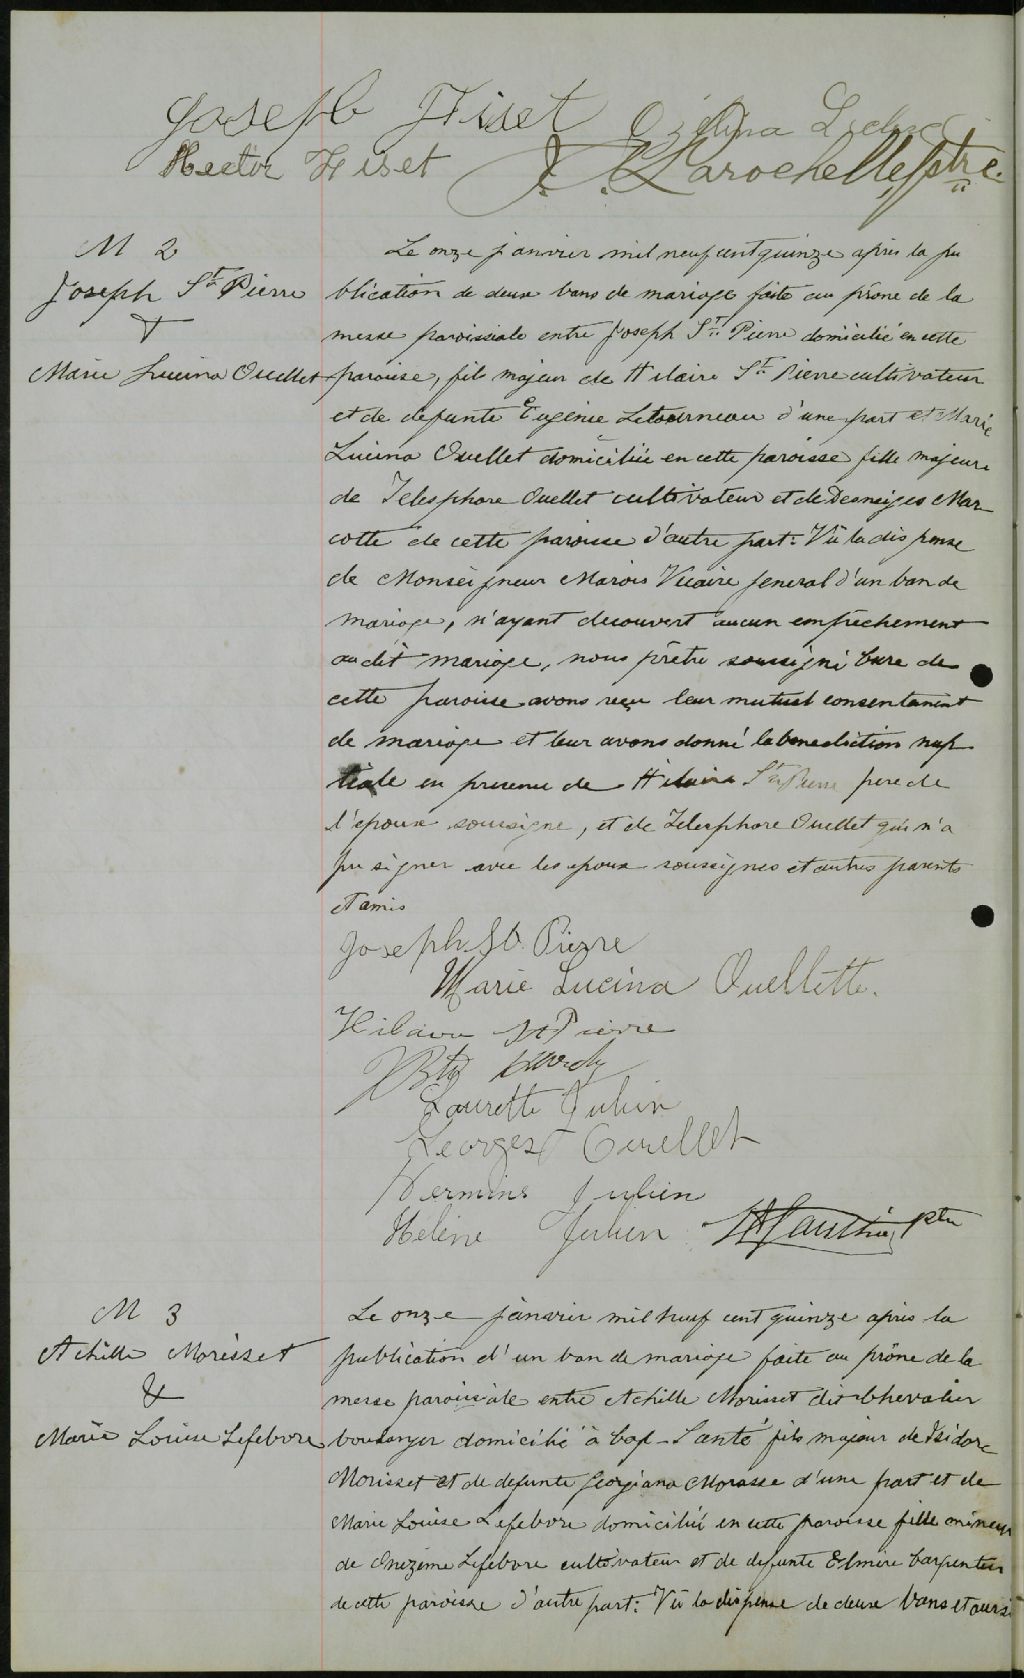 Joseph Fiset Ozélina Leclerc
Hector Fiset J. E. Larochelle, ptre.
M 2
Joseph St Pierre
&
Marie Lucina Ouellet
Le onze janvier mil neuf cent quinze après la pu
blication de deux bans de mariage faite au prône de la
messe paroissiale entre Joseph St Pierre domicilié en cette
paroisse, fils majeur de Hilaire St Pierre cultivateur
et de defunte Eugénie Letourneau d'une part et Marie
Lucina Ouellet domiciliée en cette paroisse fille majeure
de Telesphore Ouellet cultivateur et de Desneiges Mar-
cotte de cette paroisse d'autre part: Vû la dispense
de Monseigneur Marois Vicaire general d'un ban de
mariage, n'ayant decouvert aucun empêchement
au dit mariage, nous prêtre soussigné Cure de
cette paroisse avons reçu leur mutuel consentement
de mariage et leur avons donné la benediction nup
tiale en presence de Hilaire St Pierre pere de
l'epoux soussigne, et de Telesphore Ouellet qui n'a
pu signer avec les epoux soussignes et autres parents
et amis
Joseph St. Pierre
Marie Lucina Ouellette.
Hilaire St Pierre
Hardy
Laurette Julien
Georges Ouellet
Hermine Julien
Hélène Julien Gauthier ptre
M 3
Achille Morisset
&
Marie Louise Lefebvre
Le onze janvier mil neuf cent quinze après la
publication d'un ban de mariage faite au prône de la
messe paroissiale entre Achille Morisset dit Chevalier
boulanger domicilié à Cap-Santé fils majeur de Isidore
Morisset et de defunte Georgiana Morasse d'une part et de
Marie Louise Lefebvre domiciliée en cette paroisse fille mineure
de Onezime Lefebvre cultivateur et de defunte Elmire Carpentier
de cette paroisse d'autre part: Vû la dispense de deux bans et aussi